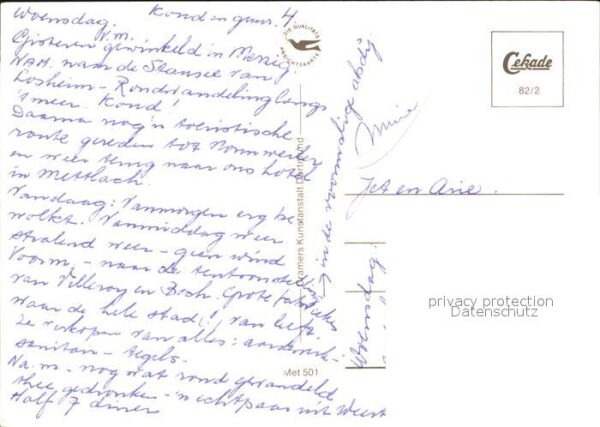 Woensdag. Koud en guur. 4
N.M.
Gisteren gewinkeld in Merzig.
N.A.M. naar de Stausee van
Losheim - Rondwandeling langs
't meer. Koud!
Daarna nog'n toeristische
route gereden tot Nonnweiler
en weer terug naar ons hotel
in Mettlach.
Vandaag: Vanmorgen erg be
wolkt. Vanmiddag weer
stralend weer - geen wind
Voorm. - naar de tentoonstelling
van Villeroy en Boch. Grote fabriek
waar de hele stad van leeft.
Ze verkopen van alles: aardewerk -
sanitair - tegels.
Na.m. - nog wat rond gewandeld
thee gedronken - 'n echtpaar uit Weert
Half 7 diner
DIE QUALITÄTS
ANSICHTSKARTE
Cramers Kunstanstalt Dortmund
Met 501
Woensdag:
in de voormalige abdij
Mina
Cekade
82/2
Jet en Arie.
privacy protection
Datenschutz